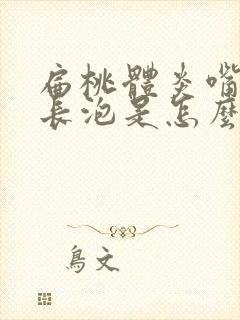 扁桃體炎嘴
長泡是怎麼
鳥文